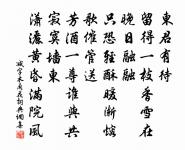 東君有待
留得一枝香雪在
晚日融融
只恐輕酥暖漸熔
歌催管送
芳酒一尊誰與共
寂寞墻東
瀟灑黃昏滿院風
減字木蘭花